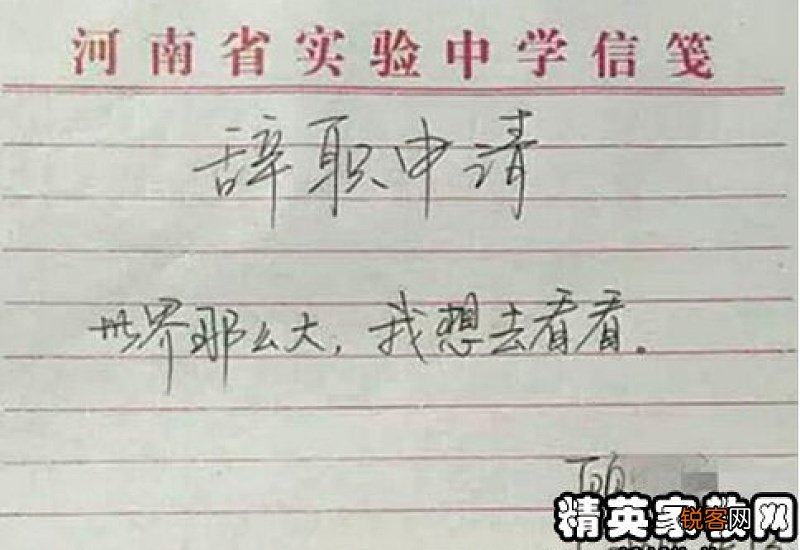 河南省实验中学信笺
辞职申请
世界那么大，我想去看看。
顾
精英家教网
锐客网